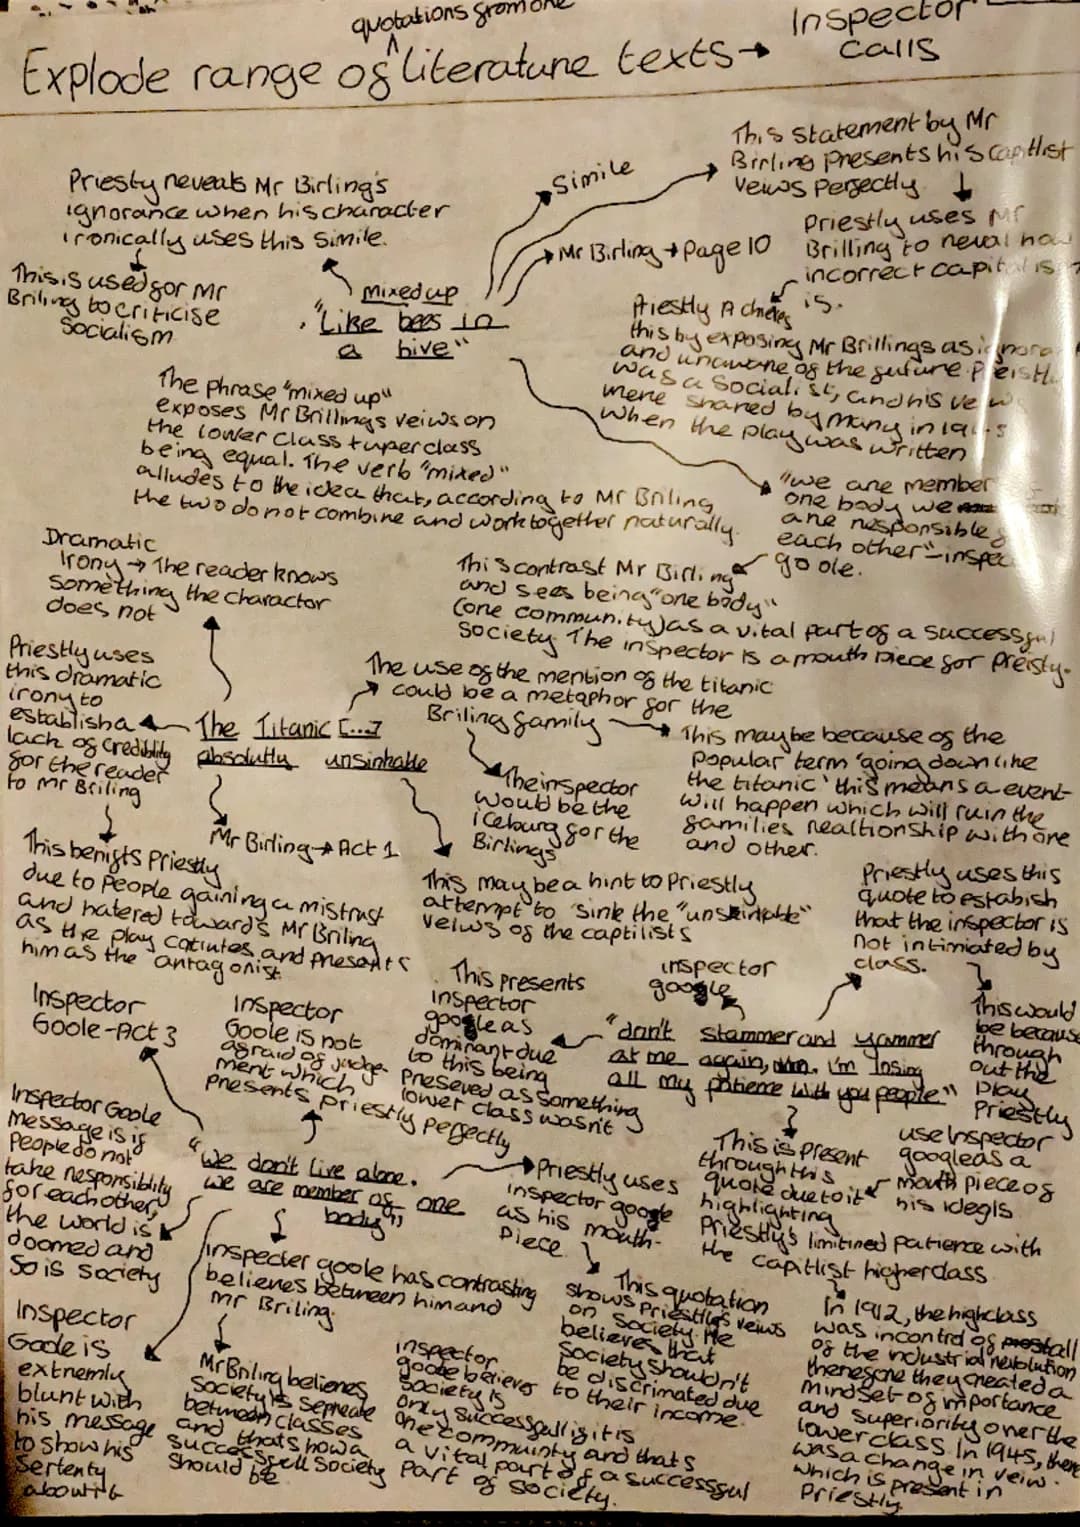 quotations from one
Explode range of ^ literature texts → Inspector
calls
Priesty reveals Mr Birling's
ignorance when his character
ironically uses this simile.
This is used for Mr
Briling to criticise
Socialism
mixed up
"Like bees in
a hive"
Simile
Mr Birling → Page 10
This statement by Mr
Birling Presents his capitlist
veiws perfectly
Priestly uses Mr
Brilling to reveal how
incorrect capitalis
is.
Priestly Achieves
this by exposing Mr Brillings as ignora
and unaware of the future. Preistly
was a Socialist, and his veiw
were shared by many in 1945
when the play was written
The phrase "mixed up"
exposes Mr Brillings veiws on
the lower class + uperclass
being equal. The verb "mixed"
alludes to the idea that, according to Mr Briling
the two do not combine and work together naturally.
"we are member
one body we
are responsible
each other" - inspec
goole.
This contrast Mr Birling
and sees being "one body"
(one community) as a vital part of a successful
society. The inspector is a mouth piece for Preisty.
Dramatic
Irony → The reader knows
something the charactor
does not
Priestly uses
this dramatic
irony to
establish a
lack of credibility
for the reader
to Mr Briling
The Titanic [...]
absolutly unsinkable
Mr Birling → Act 1
The use of the mention of the titanic
could be a metaphor for the
Briling family
The inspector
would be the
iceburg for the
Birlings
This maybe because of the
popular term 'going down like
the titanic' this means a event
will happen which will ruin the
families realtionship with one
and other.
This may be a hint to Priestly
attempt to 'sink the "unsinkable"
veiws of the captilists
This benifts Priestly
due to People gaining a mistrust
and hatered toward's Mr Briling
as the play cotiutes and presents
him as the antagonist
Priestly uses this
quote to estabish
that the inspector is
not intimiated by
class.
This would
be because
through
out the
play
Priestly
use Inspector
google as a
mouth piece of
his ideals
inspector
google
"don't stammer and yammer
at me again, man. i'm losing
all my patience with you people"
This presents
inspector
google as
dominant due
to this being
preseved as something
lower class wasn't
This is present
through this
quote due to it
highlighting
Priestly's limitined patience with
the capitlist higher class
In 1912, the high class
was in control of all
of the industrial revolution
therefore they created a
mindset of importance
and superiority over the
lower class. In 1945, there
was a change in veiw.
which is present in
Priestly
Inspector
Goole - Act 3
Inspector
Goole is not
afraid of judge
ment which
presents priestly perfectly
"we don't live alone.
we are member of one
body"
Inspector Goole
message is if
People do not
take responsiblity
for each other,
the world is
doomed and
So is society
Inspector
Goole is
extremly
blunt with
his message
to show his
Sertenty
about it
inspecter goole has contrasting
believes between him and
Mr Briling.
Mr Briling believes
society is sepreate
between classes
and thats how a
successfull society
should be
inspector
goole believes
society is
only successfull if it is
one community and thats
a vital part of a successful
part of society.
Priestly uses
inspector google
as his mouth-
piece
This quotation
shows Priestly's veiws
on society. He
believes that
society shouldn't
be discrimated due
to their income.